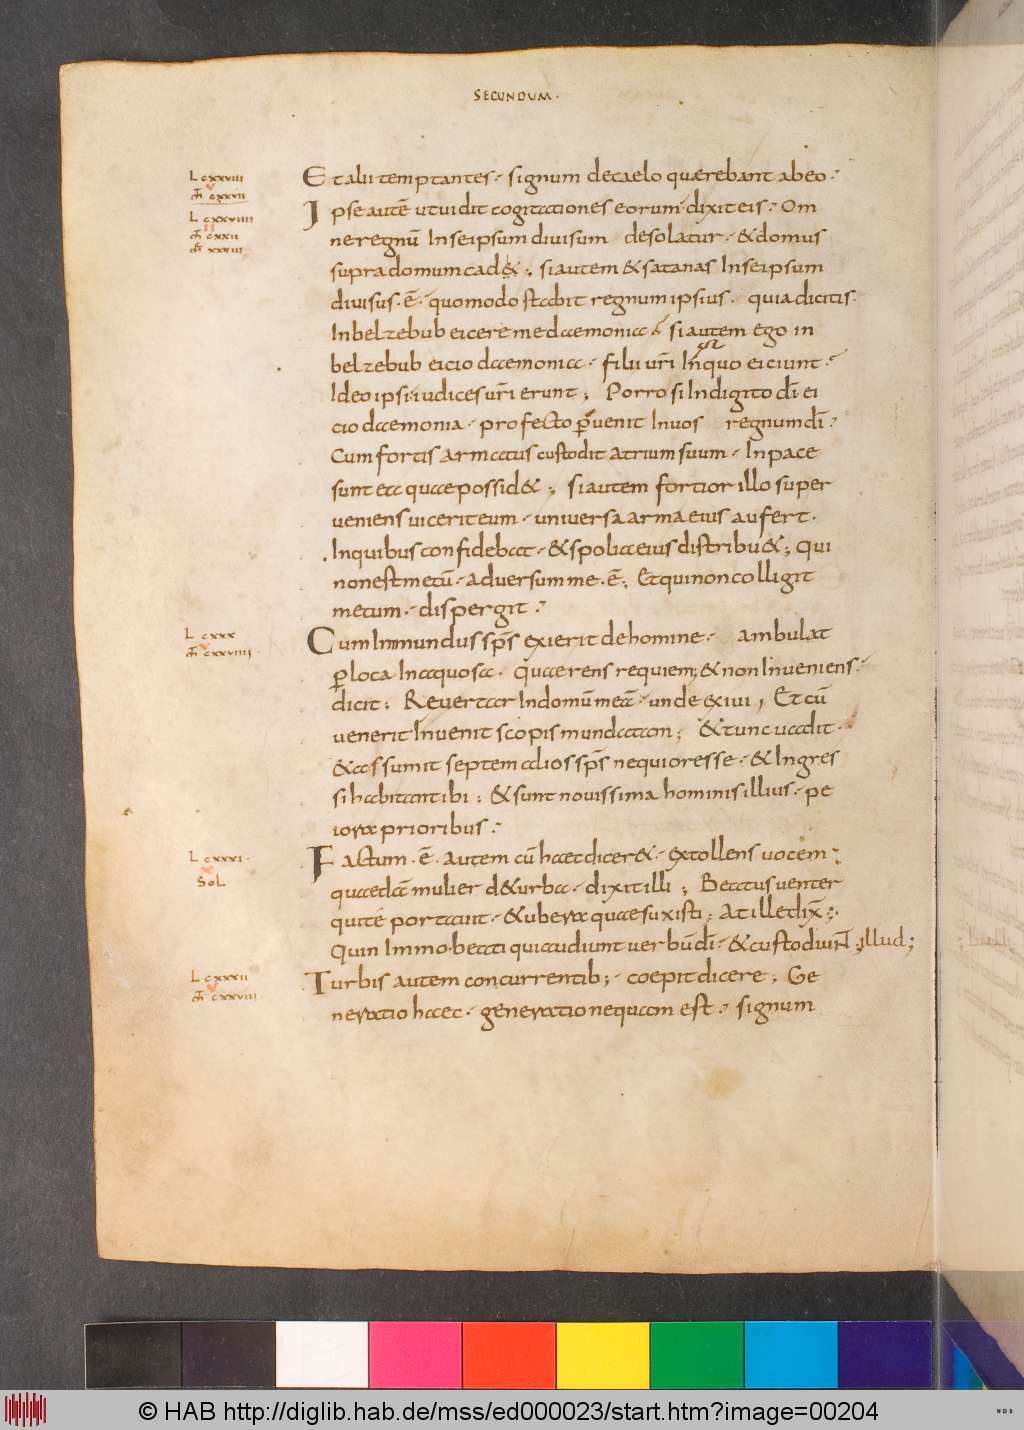 SECUNDUM·
L cxxviii
m̄ cxxvii
L cxxviiii
m̄ cxxii
m̄r xxxiii
Et alii temptantes· signum decaelo quaerebant abeo·
Ipse autē utuidit cogitationes eorum· dixit eis· Om
ne regnū Inseipsum diuisum desolatur· & domus
supra domum cad&; si autem & satanas Inseipsum
diuisus·ē· quomodo stabit regnum ipsius· quia dicitis·
Inbelzebub eicere me daemonia· si autem ego in
belzebub eicio daemonia· filii ur̄i Inquo eiciunt·
Ideo ipsi iudices ur̄i erunt; Porro si Indigito dī ei
cio daemonia· profecto p̄uenit Inuos regnum dī·
Cum fortis armatus custodit atrium suum· Inpace
sunt ea quae possid&; si autem fortior illo super
ueniens uicerit eum· uniuersa arma eius aufert·
Inquibus confidebat· & spolia eius distribu&; Qui
non est mecū· aduersum me·ē; Et qui non colligit
mecum· dispergit·
L cxxx
m̄ cxxviiii
Cum Inmundus sp̄s exierit de homine· ambulat
p̄ loca Inaquosa· Quaerens requiem; & non Inueniens·
dicit; Reuertar Indomū meā· unde exiui, Et cū
uenerit Inuenit scopis mundatam; & tunc uadit·
& assumit septem alios sp̄s nequiores se· & Ingres
si habitant ibi; & sunt nouissima hominis illius· pe
iora prioribus·
L cxxxi·
SoL
Factum·ē· autem cū haec dicer&· extollens uocem·
quaedā mulier d& urba· dixit illi; Beatus uenter
qui te portauit· & ubera quae suxisti; At ille dix̄;
Quin Immo· beati qui audiunt uerbū dī· & custodiunt illud;
L cxxxii
m̄ cxxviii
Turbis autem concurrentib;· coepit dicere; Ge
neratio haec· generatio nequam est· signum
© HAB http://diglib.hab.de/mss/ed000023/start.htm?image=00204